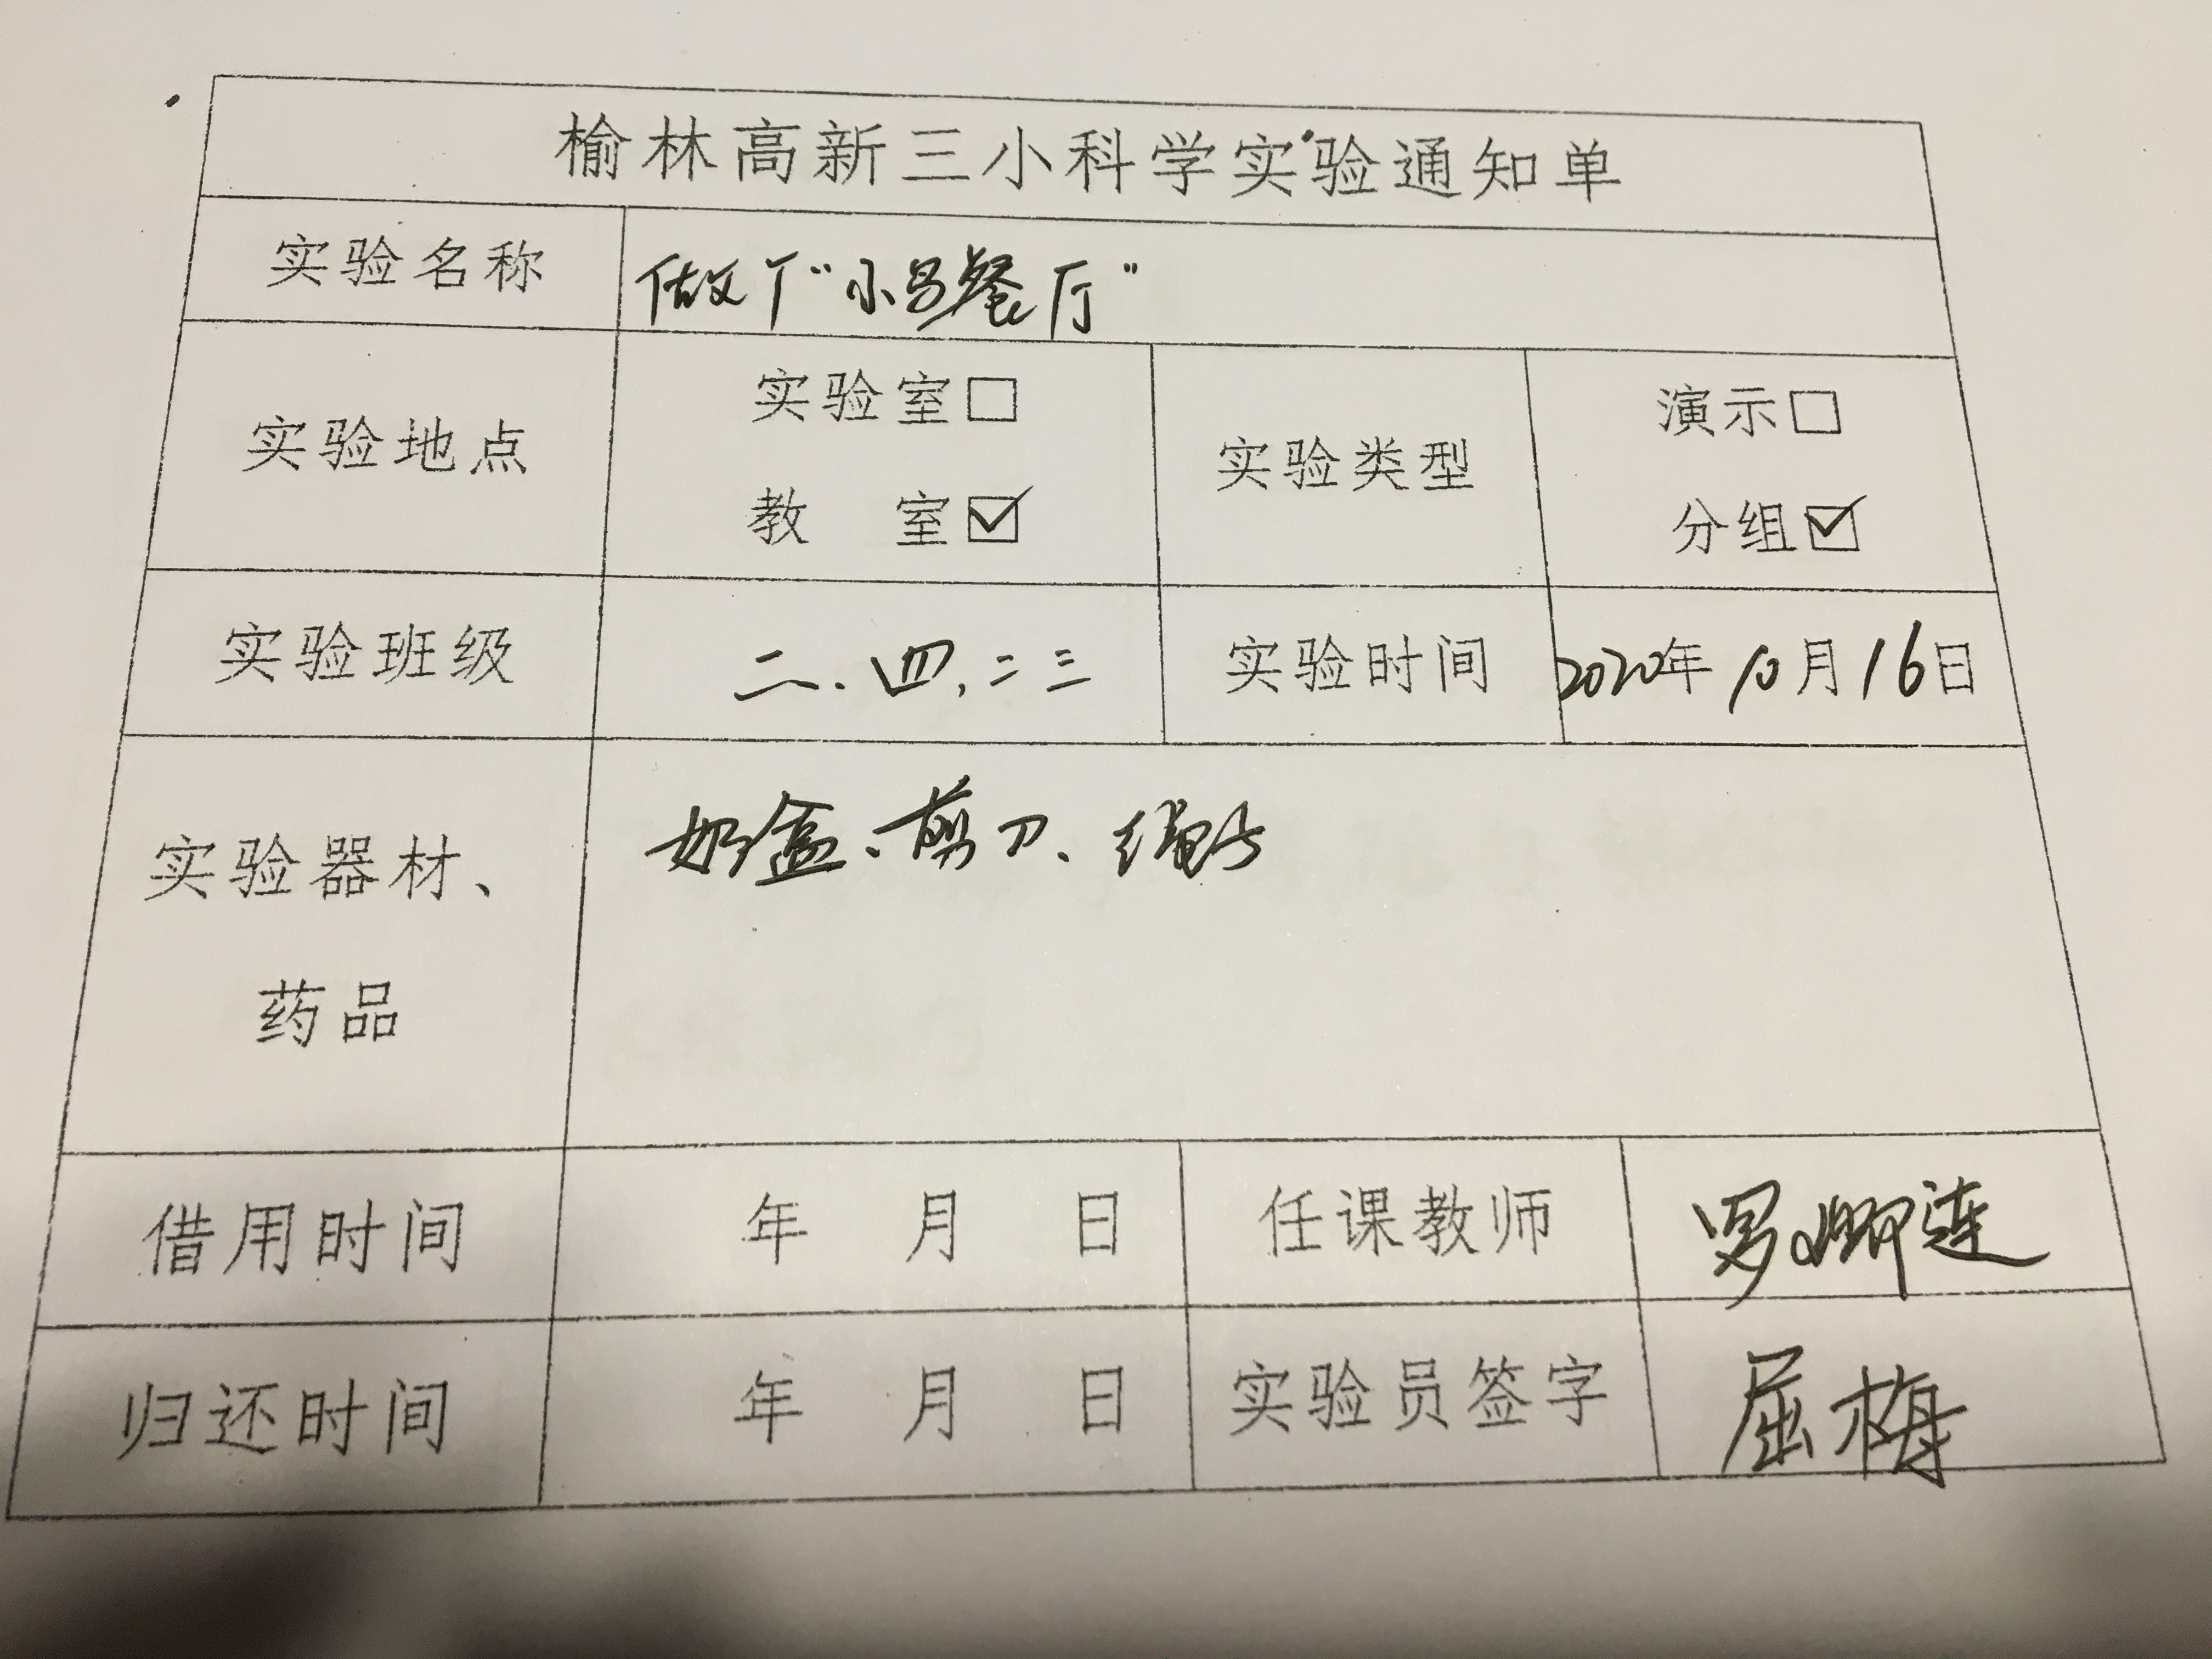 榆林高新三小科学实验通知单
实验名称 做个“小鸟餐厅”
实验地点 实验室□ 教 室☑ 实验类型 演示□ 分组☑
实验班级 二.四,二三 实验时间 2020年10月16日
实验器材、药品 奶盒、剪刀、绳子
借用时间 年 月 日 任课教师 罗卿连
归还时间 年 月 日 实验员签字 屈梅